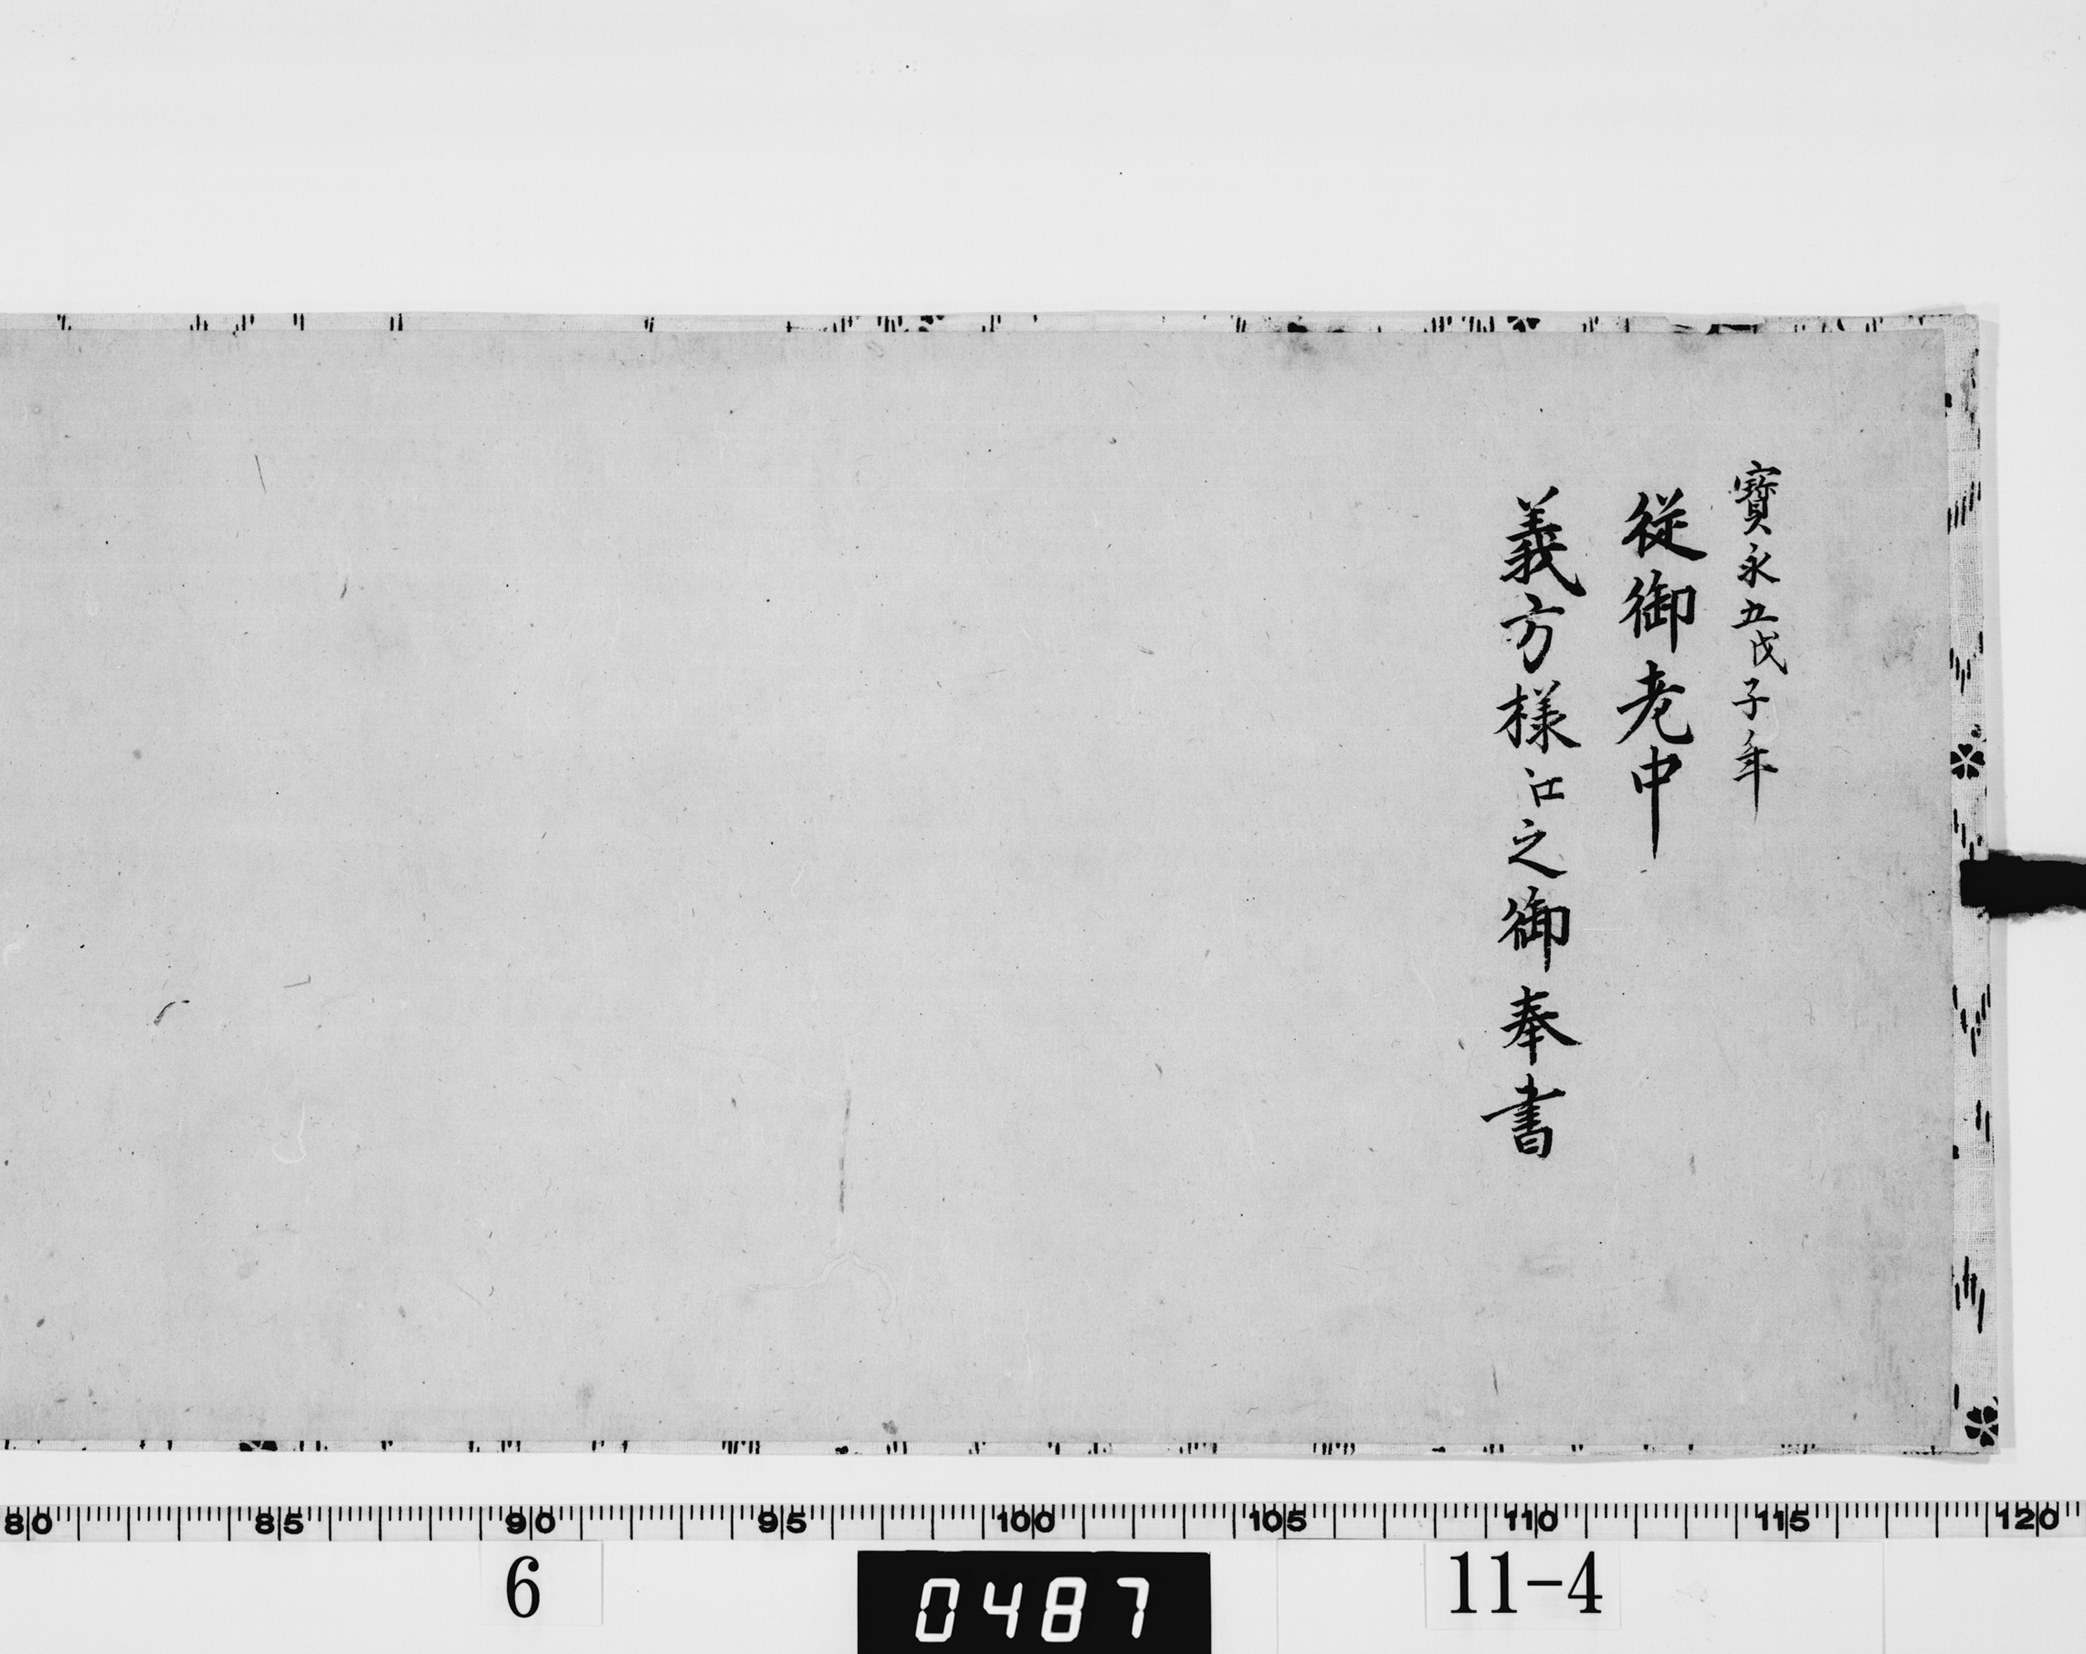 寳永五戊子年
従御老中
義方様江之御奉書
80 85 90 95 100 105 110 115 120
6
0487
11-4